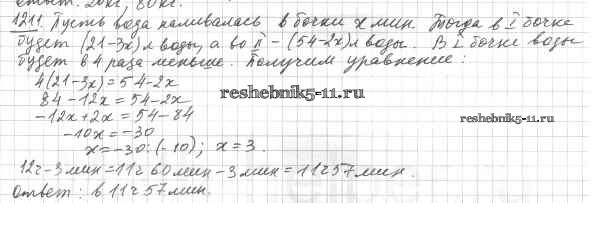 ответ: 20кг, 80кг.
1211. Пусть вода наливалась в бочки x мин. Тогда в I бочке
будет (21-3x)л воды, а во II - (54-2x)л воды. В I бочке воды
будет в 4 раза меньше. Получим уравнение:
4(21-3x)=54-2x
84-12x=54-2x
reshebnik5-11.ru
-12x+2x=54-84
reshebnik5-11.ru
-10x=-30
x=-30:(-10); x=3.
12ч-3мин=11ч 60мин-3мин=11ч57мин.
ответ: в 11ч57мин.